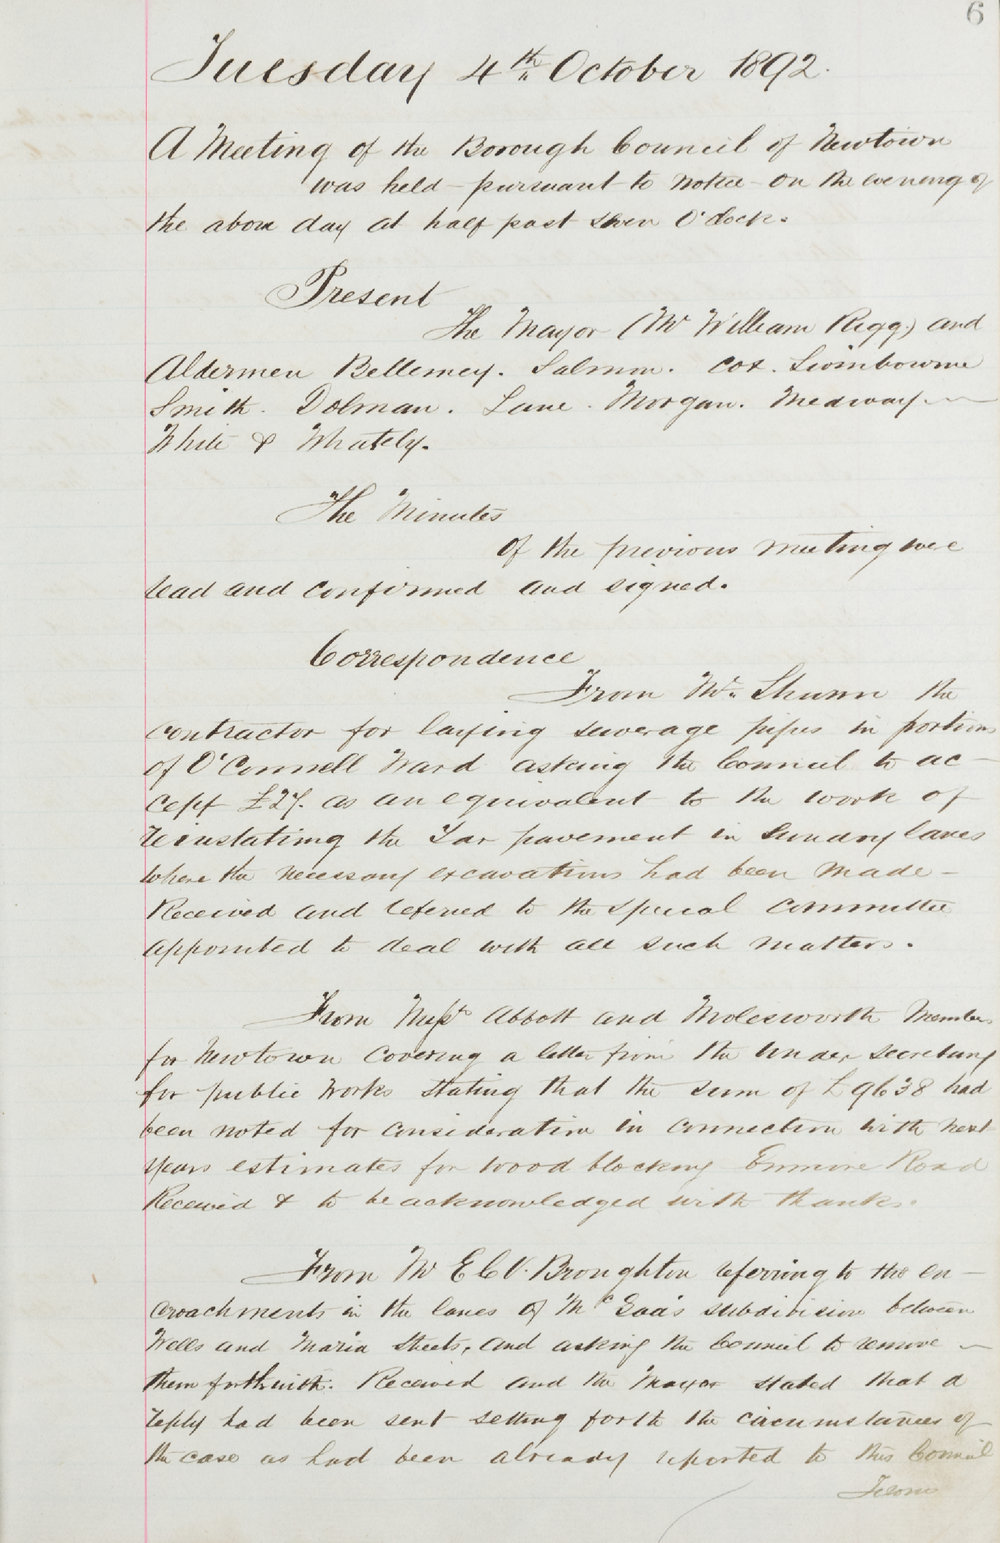 6
Tuesday 4th October 1892.
A Meeting of the Borough Council of Newtown
was held - pursuant to notice - on the evening of
the above day at half past seven O'Clock.
Present
The Mayor (Mr William Rigg.) and
Aldermen Bellemey. Salmon. Cox. Swinbourne
Smith. Dolman. Lane. Morgan. Medway.
White & Whately.
The Minutes
of the previous meeting were
read and confirmed and signed.
Correspondence
From Mr. the
contractor for laying sewerage pipes in portions
of O'Connell Ward asking the Council to ac-
cept £27. as an equivalent to the work of
reinstating the Tar pavement in sundry lanes
where the necessary excavations had been made -
Received and referred to the special committee
appointed to deal with all such matters.
From Messrs Abbott and Molesworth Members
for Newtown covering a letter from the Under Secretary
for public Works stating that the sum of £9638 had
been noted for consideration in connection with next
years estimates for wood blocking Enmore Road
Received & to be acknowledged with thanks.
From Mr E C V. Broughton referring to the en-
croachments in the lanes of subdivision between
Wells and Maria Streets, and asking the Council to remove
them forthwith. Received and the Mayor stated that a
reply had been sent setting forth the circumstances of
the case as had been already reported to this Council
From